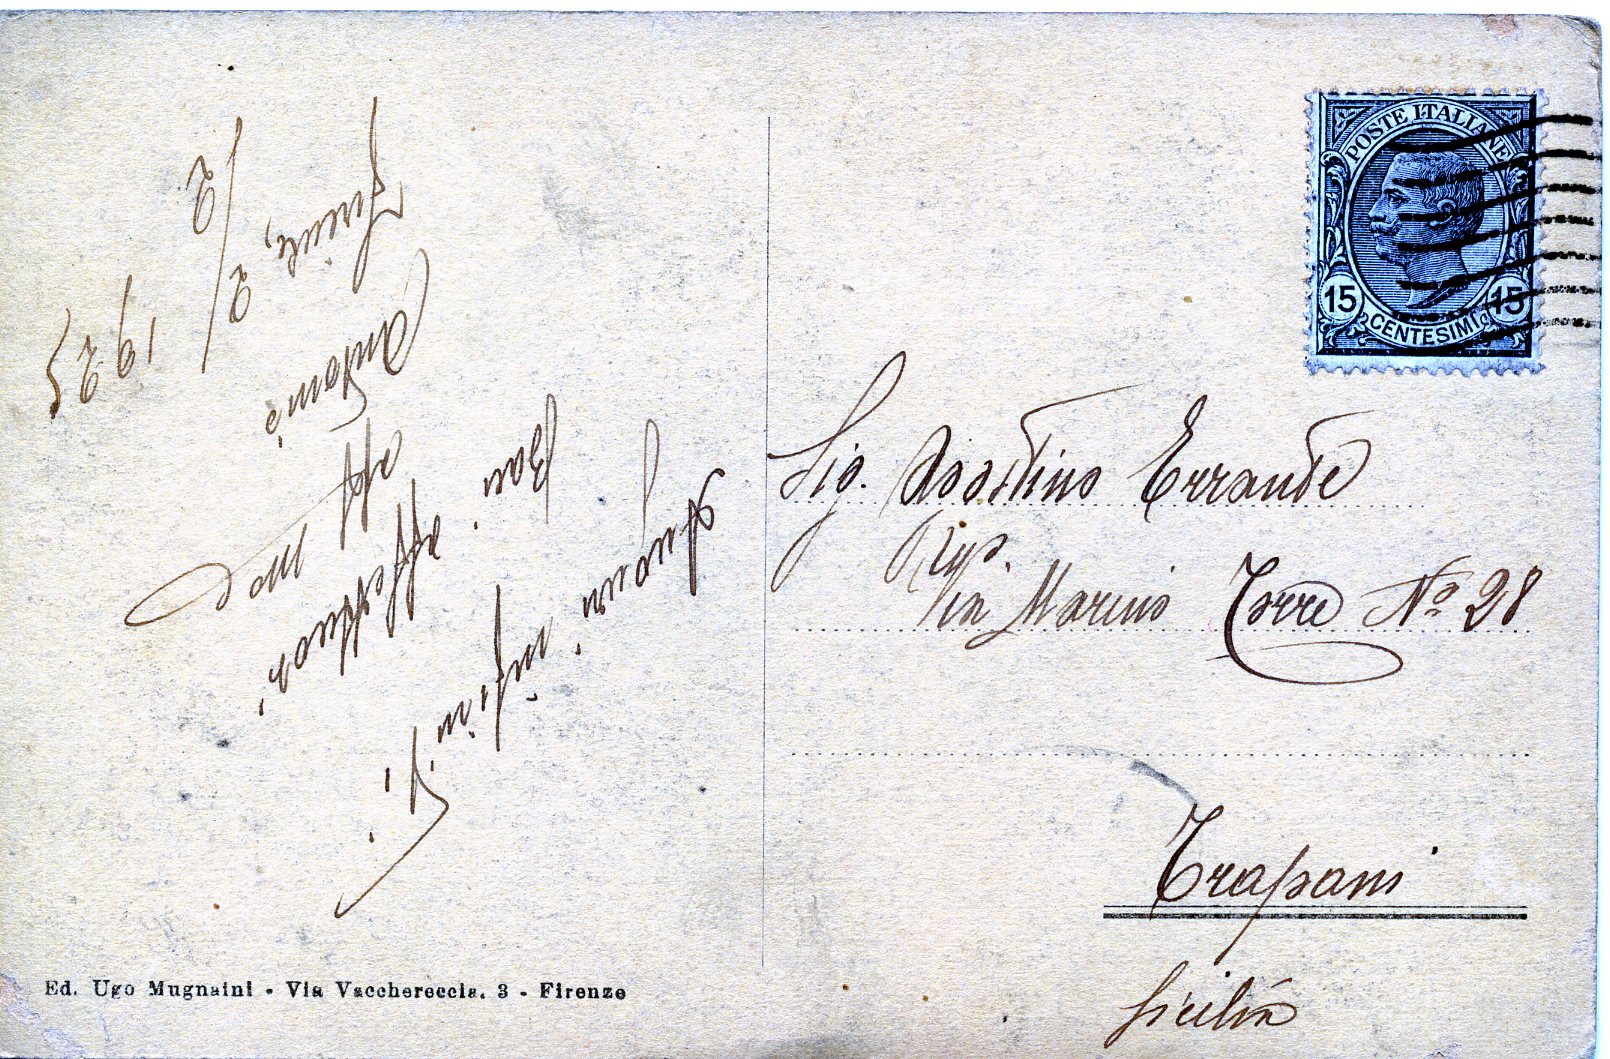 Baci affettuosi,
aff mo
Antonio
Firenze, 2/2 1925
Ed. Ugo Mugnaini - Via Vacchereccia, 3 - Firenze
POSTE ITALIANE
15 15
CENTESIMI
Sig. Agostino Errante
Via Marino Torre Nº 28
Trapani
Sicilia